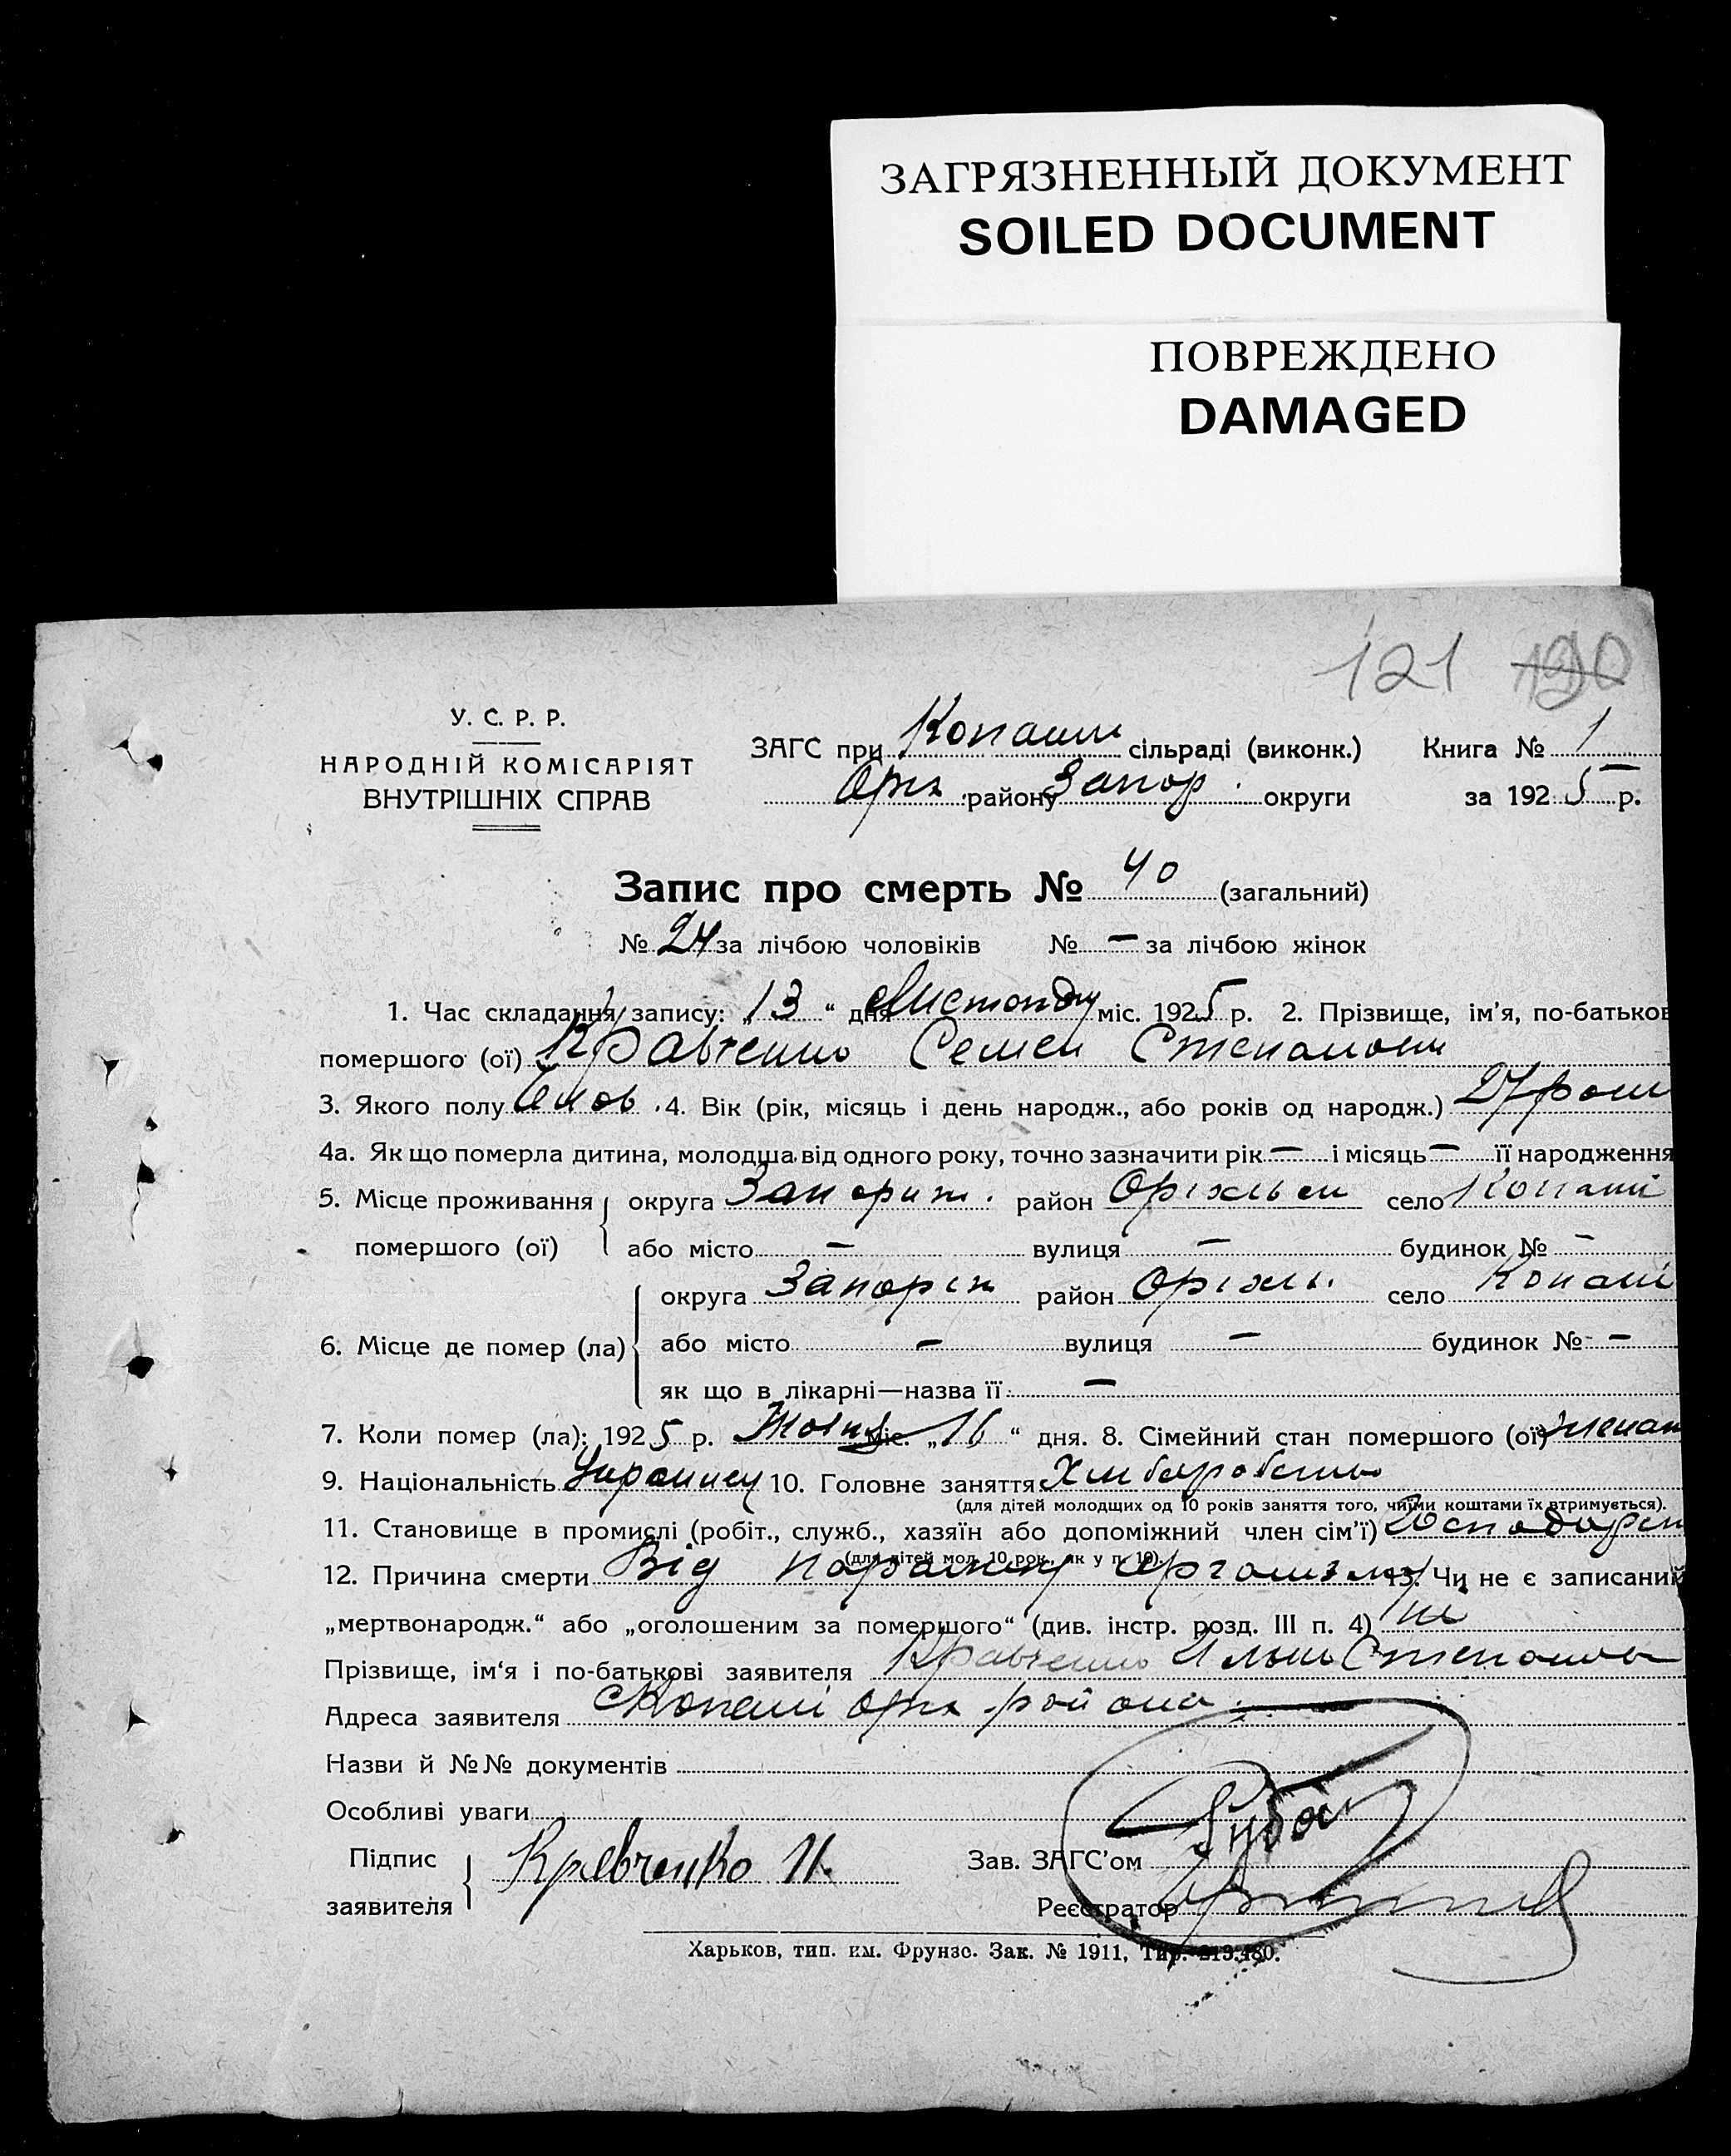 ЗАГРЯЗНЕННЫЙ ДОКУМЕНТ
SOILED DOCUMENT
ПОВРЕЖДЕНО
DAMAGED
121
У. С. Р. Р.
НАРОДНІЙ КОМІСАРІЯТ
ВНУТРІШНІХ СПРАВ
ЗАГС при Копани сільраді (виконк.) Книга № 1
Оріх. району Запор. округи за 1925 р.
Запис про смерть № 40 (загальний)
№ 24 за лічбою чоловіків № — за лічбою жінок
1. Час складання запису: „13“ дня Листопду міс. 1925 р. 2. Прізвище, ім'я, по-батьков
помершого (ої) Кравченко Семен Степанович
3. Якого полу Чолов. 4. Вік (рік, місяць і день народж., або років од народж.) 27 рокі
4а. Як що померла дитина, молодша від одного року, точно зазначити рік — і місяць — її народження
5. Місце проживання помершого (ої) округа Запориж. район Оріхльск село Копані
або місто — вулиця — будинок № —
6. Місце де помер (ла) округа Запоріж район Оріхль. село Копані
або місто — вулиця — будинок № —
як що в лікарні—назва її: —
7. Коли помер (ла): 1925 р. Жовтн міс. „16“ дня. 8. Сімейний стан помершого (ої) женат
9. Національність Украинец 10. Головне заняття Хлибаробство
(для дітей молодщих од 10 років заняття того, чиїми коштами їх втримується).
11. Становище в промислі (робіт., служб., хазяїн або допоміжний член сім'ї)
(для дітей мол. 10 рок. як у п. 10).
12. Причина смерти Від організму 13. Чи не є записаний
„мертвонародж.“ або „оголошеним за помершого“ (див. інстр. розд. III п. 4) ні
Прізвище, ім'я і по-батькові заявителя Кравченко Степанов
Адреса заявителя с Копані Оріх района
Назви й №№ документів
Особливі уваги
Підпис заявителя Кравченко И. Зав. ЗАГС'ом
Реєстратор
Харьков, тип. им. Фрунзе. Зак. № 1911, Тир. 213.480.